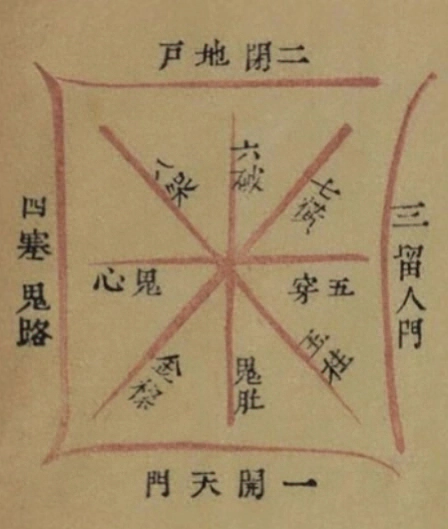 二閉地戶
三留人門
四塞鬼路
六破
七橫
八
五穿
鬼心
玉柱
鬼肚
金樑
一開天門